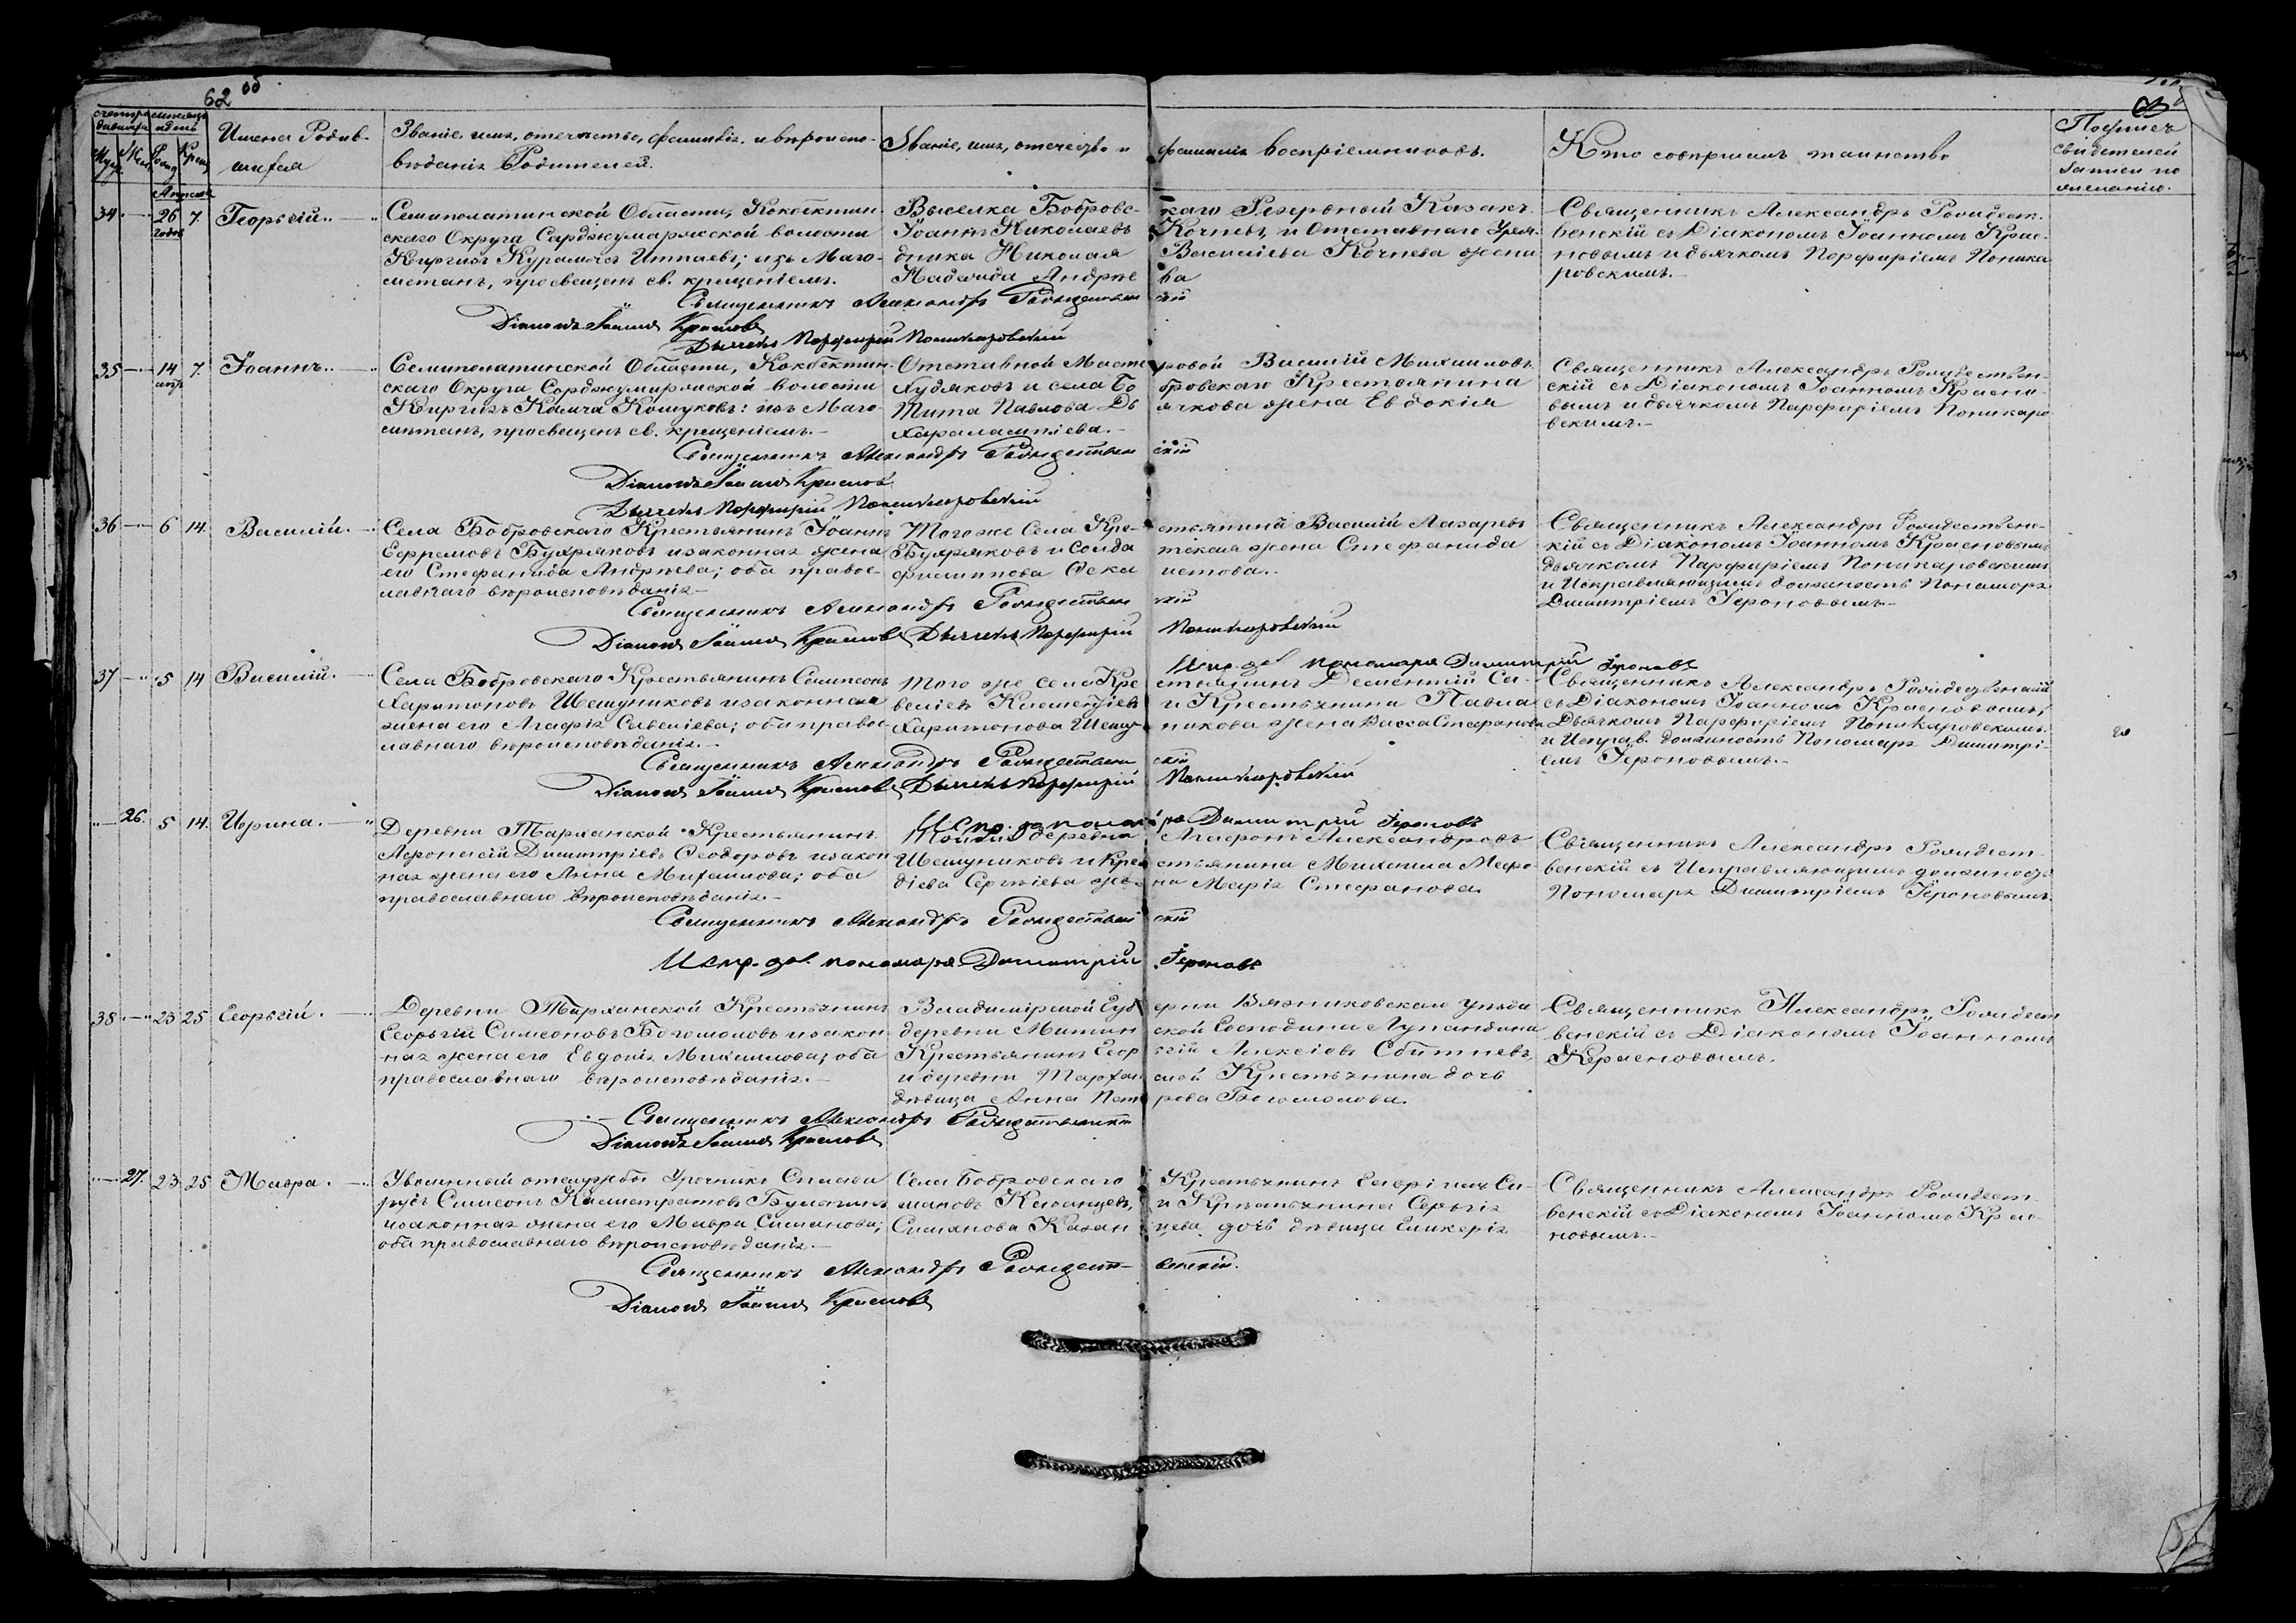 62 об
Счетъ родившихся
Мѣсяцъ и день
Муж.
Жен.
Рожд.
Крещ.
Имена Родив-
шихся
Званіе, имя, отечество, фамилія, и вѣроиспо-
вѣданіе Родителей.
Званіе, имя, отечество и
фамилія воспріемниковъ.
Кто совершилъ таинство
свидетелей
записи по
желанію.
Апреля
34. 26 годовъ 7. Георгій.
Семиполатинской Области, Кокбектин-
скаго Округа Сарджумартской волости
Киргизъ Иттаевъ; изъ Маго-
метанъ, просвещенъ св. крещеніемъ.
Выселка Бобровс-
Іоаннъ Николаевъ
дника Николая
Надежда Андрѣе
каго Резервный Казакъ
Кочневъ, и Отставнаго Уря-
Васильева Кочнева жена
ва
Священникъ Александръ Рождест-
венскій съ Діакономъ Іоанномъ Крас-
новымъ и дьячкомъ Порфиріемъ Поника
ровскимъ.
Священникъ Александръ Рождествен
скій
Діаконъ Іоаннъ Красновъ
Дьячекъ Порфирій Поникаровскій
35 14 7. Іоаннъ.
Семиполатинской Области, Кокбектин-
скаго Округа Сарджумартской волости
Киргизъ Камча Кошуковъ: изъ Маго-
метанъ, просвещенъ св. крещеніемъ.
Отставной Масте
Худяковъ и села Бо
Тита Павлова Дь
Харалампіева.
ровой Василій Михаиловъ
бровскаго Крестьянина
ячкова жена Евдокія
Священникъ Александръ Рождествен-
скій съ Діакономъ Іоанномъ Красно-
вымъ и дьячкомъ Парфиріемъ Поникаро
вскимъ.
Священникъ Александръ Рождествен
скій
Діаконъ Іоаннъ Красновъ
Дьячекъ Порфирій Поникаровскій
36 6 14. Василій.
Села Бобровскаго Крестьянинъ Іоаннъ
Ефремовъ Бухряковъ и законная жена
его Стефанида Андрѣева; оба правос-
лавнаго вѣроисповѣданія
Того же Села Кре-
Бухряковъ и Солда
филиппова Оска
стьянинъ Василій Лазаревъ
тская жена Стефанида
Священникъ Александръ Рождествен-
кій съ Діакономъ Іоанномъ Красновымъ
дьячкомъ Парфиріемъ Поникаровскимъ
и Исправляющимъ должность Пономаря
Димитріемъ Героновымъ.
Священникъ Александръ Рождествен
скій
Діаконъ Іоаннъ Красновъ Дьячекъ Порфирій
Поникаровскій
Испр. дол. пономаря Димитрій Героновъ
37 5 14 Василій.
Села Бобровскаго Крестьянинъ Сампсонъ
Харитоновъ Шешуниковъ и законная
жена его Агафія Савеліева; оба правос-
лавнаго вѣроисповѣданія.
Того же села Кре
веліевъ Клементіевъ
Харитонова Шешу-
стьянинъ Дементій Са-
и Крестьянина Павла
никова жена Васса Стефанова
Священникъ Александръ Рождественскій
съ Діакономъ Іоанномъ Красновымъ,
Дьячкомъ Парфиріемъ Поникаровскимъ
и Исправ. должность Пономаря Димитрі-
емъ Героновымъ.
Священникъ Александръ Рождествен
скій
Діаконъ Іоаннъ Красновъ Дьячекъ Порфирій
Поникаровскій
Испр. до пономаря Димитрій Героновъ
26. 5 14. Ирина.
Деревни Тарханской Крестьянинъ
Афонасій Димитріевъ Феодоровъ и закон
ная жена его Анна Михаилова; оба
православнаго вѣроисповѣданія.
Той же деревни
Шешуниковъ и Кре
діева Сергѣева же-
Агафонъ Александровъ
стьянина Михаила Мефо-
на Марія Стефанова
Священникъ Александръ Рождест-
венскій съ Исправляющимъ должность
Пономаря Димитріемъ Героновымъ.
Священникъ Александръ Рождествен
скій
Испр. дол. пономаря Димитрій Героновъ
38. 23 25 Георгій.
Деревни Тарханской Крестьянинъ
Георгій Симеоновъ Богомоловъ и закон-
ная жена его Евдокія Михаилова; оба
православнаго вѣроисповѣданія.
Владимірской Губ
деревни Митин
Крестьянинъ Геор
и деревни Тархан
дѣвица Анна Пет
ерніи Вязниковскаго уѣзда
ской Господина Лупандина
гій Алексіевъ Сбитневъ,
ской Крестьянина дочь
рова Богомолова.
Священникъ Александръ Рождест
венскій съ Діакономъ Іоанномъ
Красновымъ.
Священникъ Александръ Рождественскій
Діаконъ Іоаннъ Красновъ
27. 23 25 Мавра.
Уволенный отъ службы Урочникъ
Симеонъ Калистратовъ Булыгинъ
и законная жена его Мавра Симанова;
оба православнаго вѣроисповѣданія.
Села Бобровскаго
мановъ Казанцевъ,
Симанова Казан
Крестьянинъ Си-
и Крестьянина Сергія
цева дочь дѣвица Гликерія
Священникъ Александръ Рождест
венскій съ Діакономъ Іоанномъ Крас-
новымъ.
Священникъ Александръ Рождест-
венскій.
Діаконъ Іоаннъ Красновъ